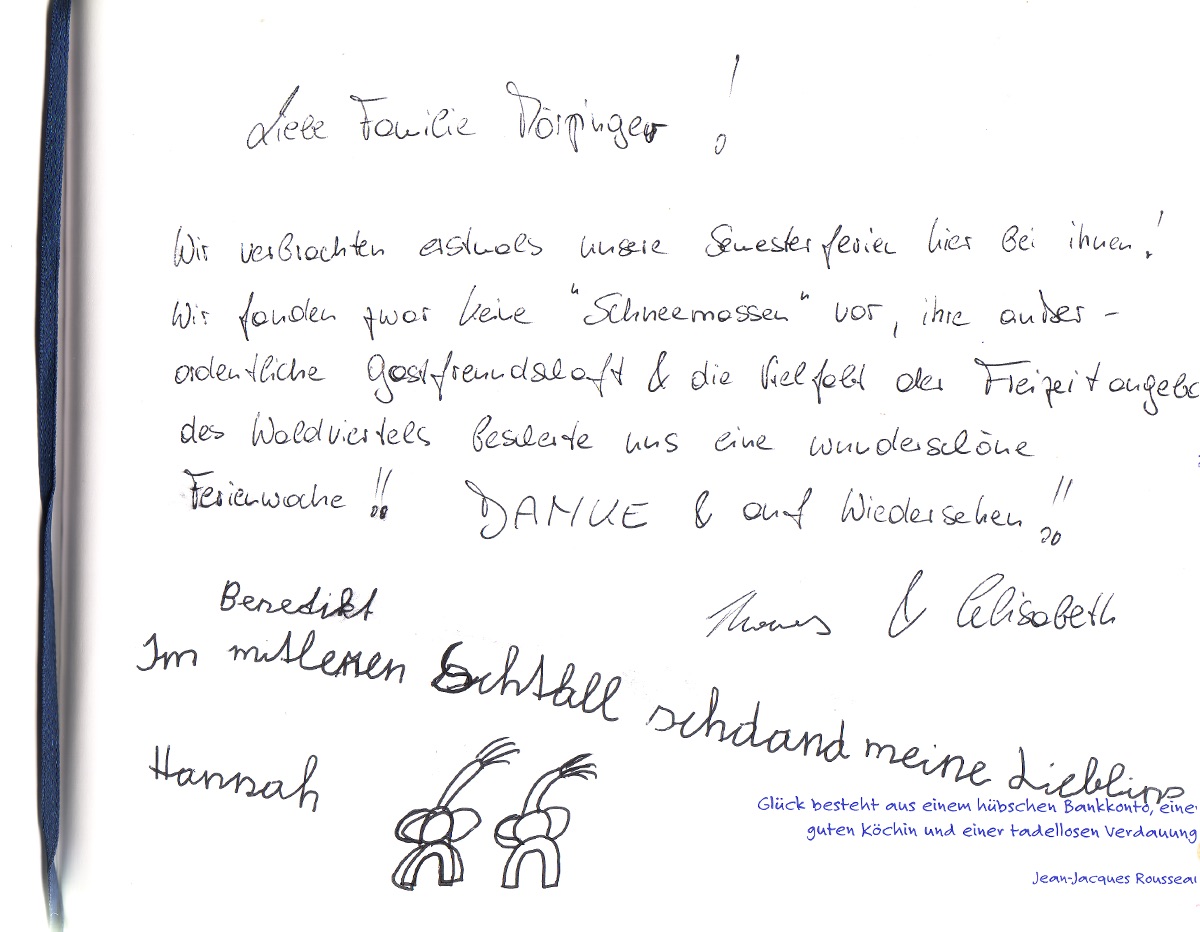 Liebe Familie Dörpinger!
Wir verbrachten erstmals unsere Semesterferien hier bei ihnen!
Wir fanden zwar keine "Schneemassen" vor, ihre außer-
ordentliche Gastfreundschaft & die Vielfalt der Freizeitangebo
des Waldviertels bescherte uns eine wunderschöne
Ferienwoche!! DANKE & auf Wiedersehen!!
Benedikt
Thomas & Elisabeth
Im mitleren schtall schdand meine Lieblings
Hannah
Glück besteht aus einem hübschen Bankkonto, eine
guten Köchin und einer tadellosen Verdauung
Jean-Jacques Rousseau